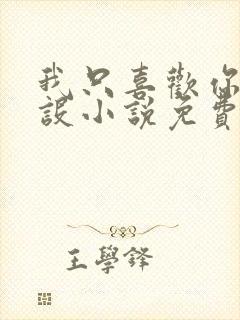 我只喜歡你
設小說免費
王學鋒